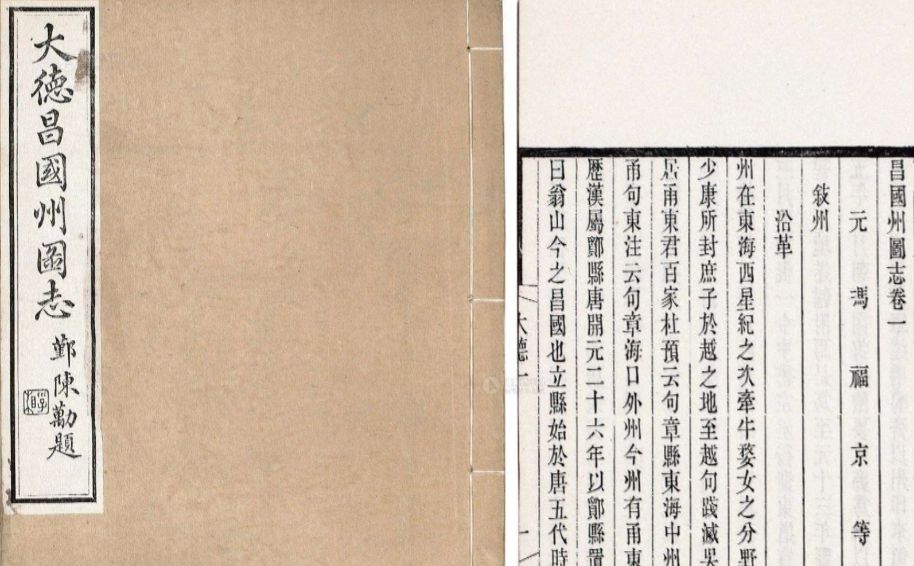 大德昌國州圖志
鄞陳勱題
昌國州圖志卷一
元馮福京等
敍州
沿革
州在東海西星紀之次牽牛婺女之分野
少康所封庶子於越之地至越句踐滅吳
居甬東君百家杜預云句章縣東海中州
甬句東注云句章海口外州今州有甬東
歷漢屬鄮縣唐開元二十六年以鄮縣置
曰翁山今之昌國也立縣始於唐五代時
大德一
一